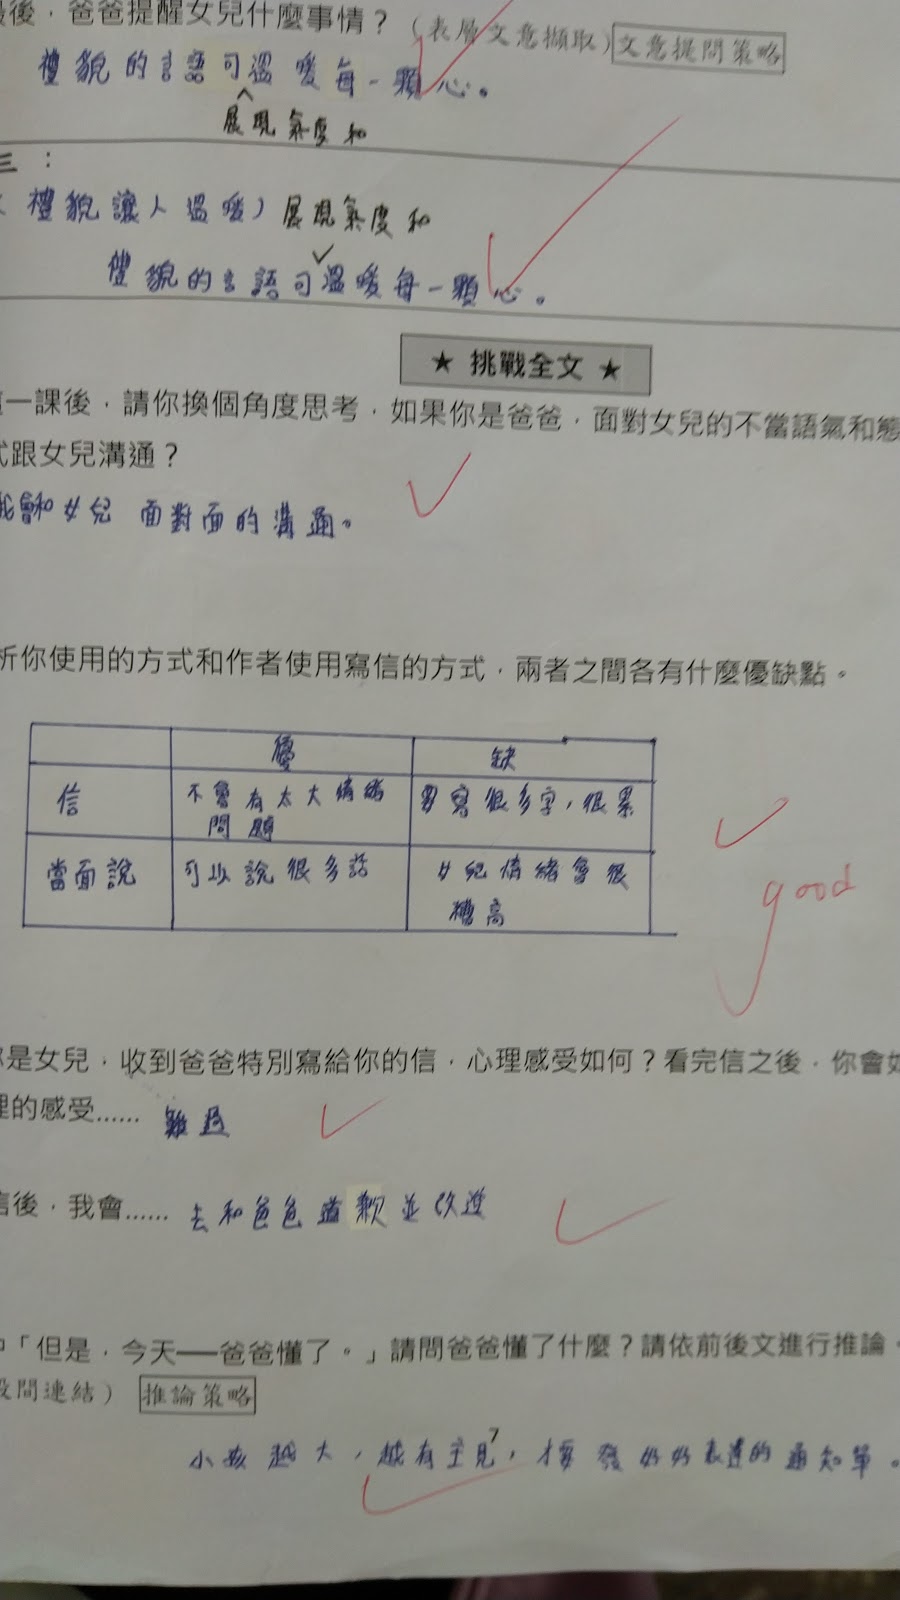 後，爸爸提醒女兒什麼事情？（表層文意擷取）文意提問策略
禮貌的言語可溫暖每一顆心。
展現氣度和
三：
禮貌讓人溫暖）展現氣度和
禮貌的言語可溫暖每一顆心。
★ 挑戰全文 ★
一課後，請你換個角度思考，如果你是爸爸，面對女兒的不當語氣和態
跟女兒溝通？
我會和女兒 面對面的溝通。
析你使用的方式和作者使用寫信的方式，兩者之間各有什麼優缺點。
優 缺
信 不會有太大情緒問題 要寫很多字，很累
當面說 可以說很多話 女兒情緒會很糟高
good
你是女兒，收到爸爸特別寫給你的信，心理感受如何？看完信之後，你會如
理的感受…… 難過
信後，我會…… 去和爸爸道歉並改進
「但是，今天──爸爸懂了。」請問爸爸懂了什麼？請依前後文進行推論。
段間連結） 推論策略
小孩越大，越有主見，才要發好好表達的通知單。